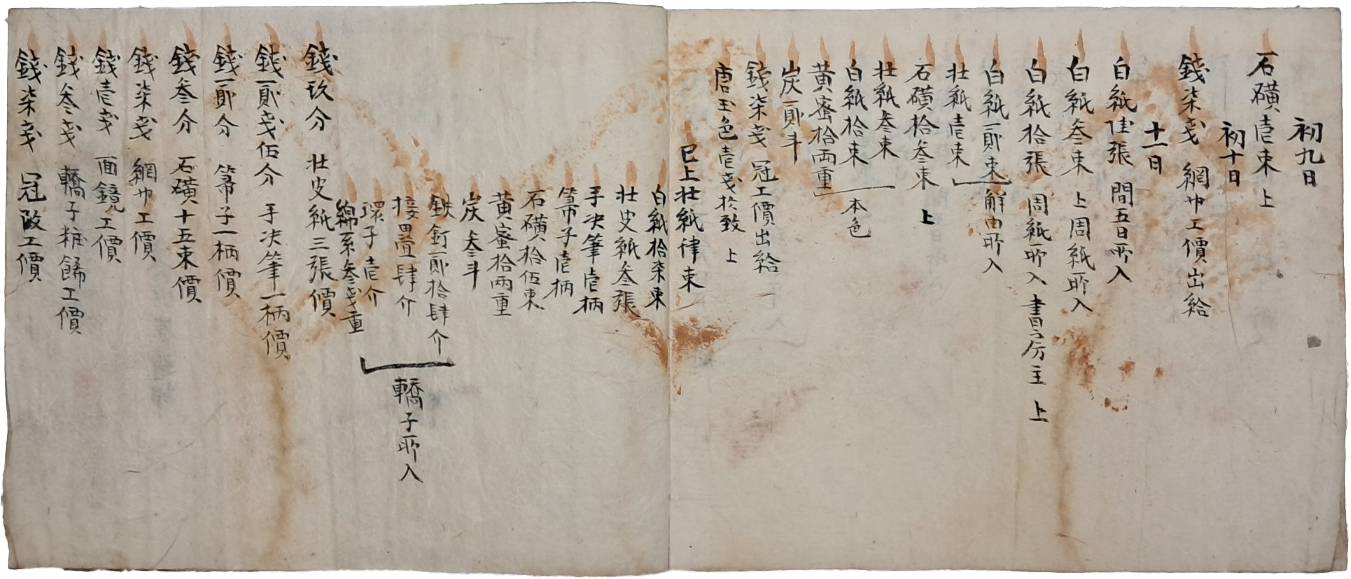 初九日
石磺壱束 上
初十日
錢柒戔 網巾工價出給
十一日
白紙佳張 間五日所入
白紙叁束 上周紙所入
白紙拾張 周紙所入 書房主 上
白紙貳束
壯紙壱束
解由所入
石磺拾叁束 上
壯紙叁束
白紙拾束
本色
黃蜜拾兩重
炭貳斗
錢柒戔 冠工價出給
唐玉色壱戔於致 上
已上壯紙肆束
白紙拾柒束
壯皮紙叁張
手决筆壱柄
箒子壱柄
石磺拾伍束
黃蜜拾兩重
炭叁斗
鉄釘貳拾肆介
接置肆介
環子壱介
綿糸叁戔重
轎子所入
錢玖分 壯皮紙三張價
錢貳戔伍分 手决筆一柄價
錢貳分 箒子一柄價
錢叁分 石磺十五束價
錢柒戔 網巾工價
錢壱戔 面鏡工價
錢叁戔 轎子粧餙工價
錢柒戔 冠改工價